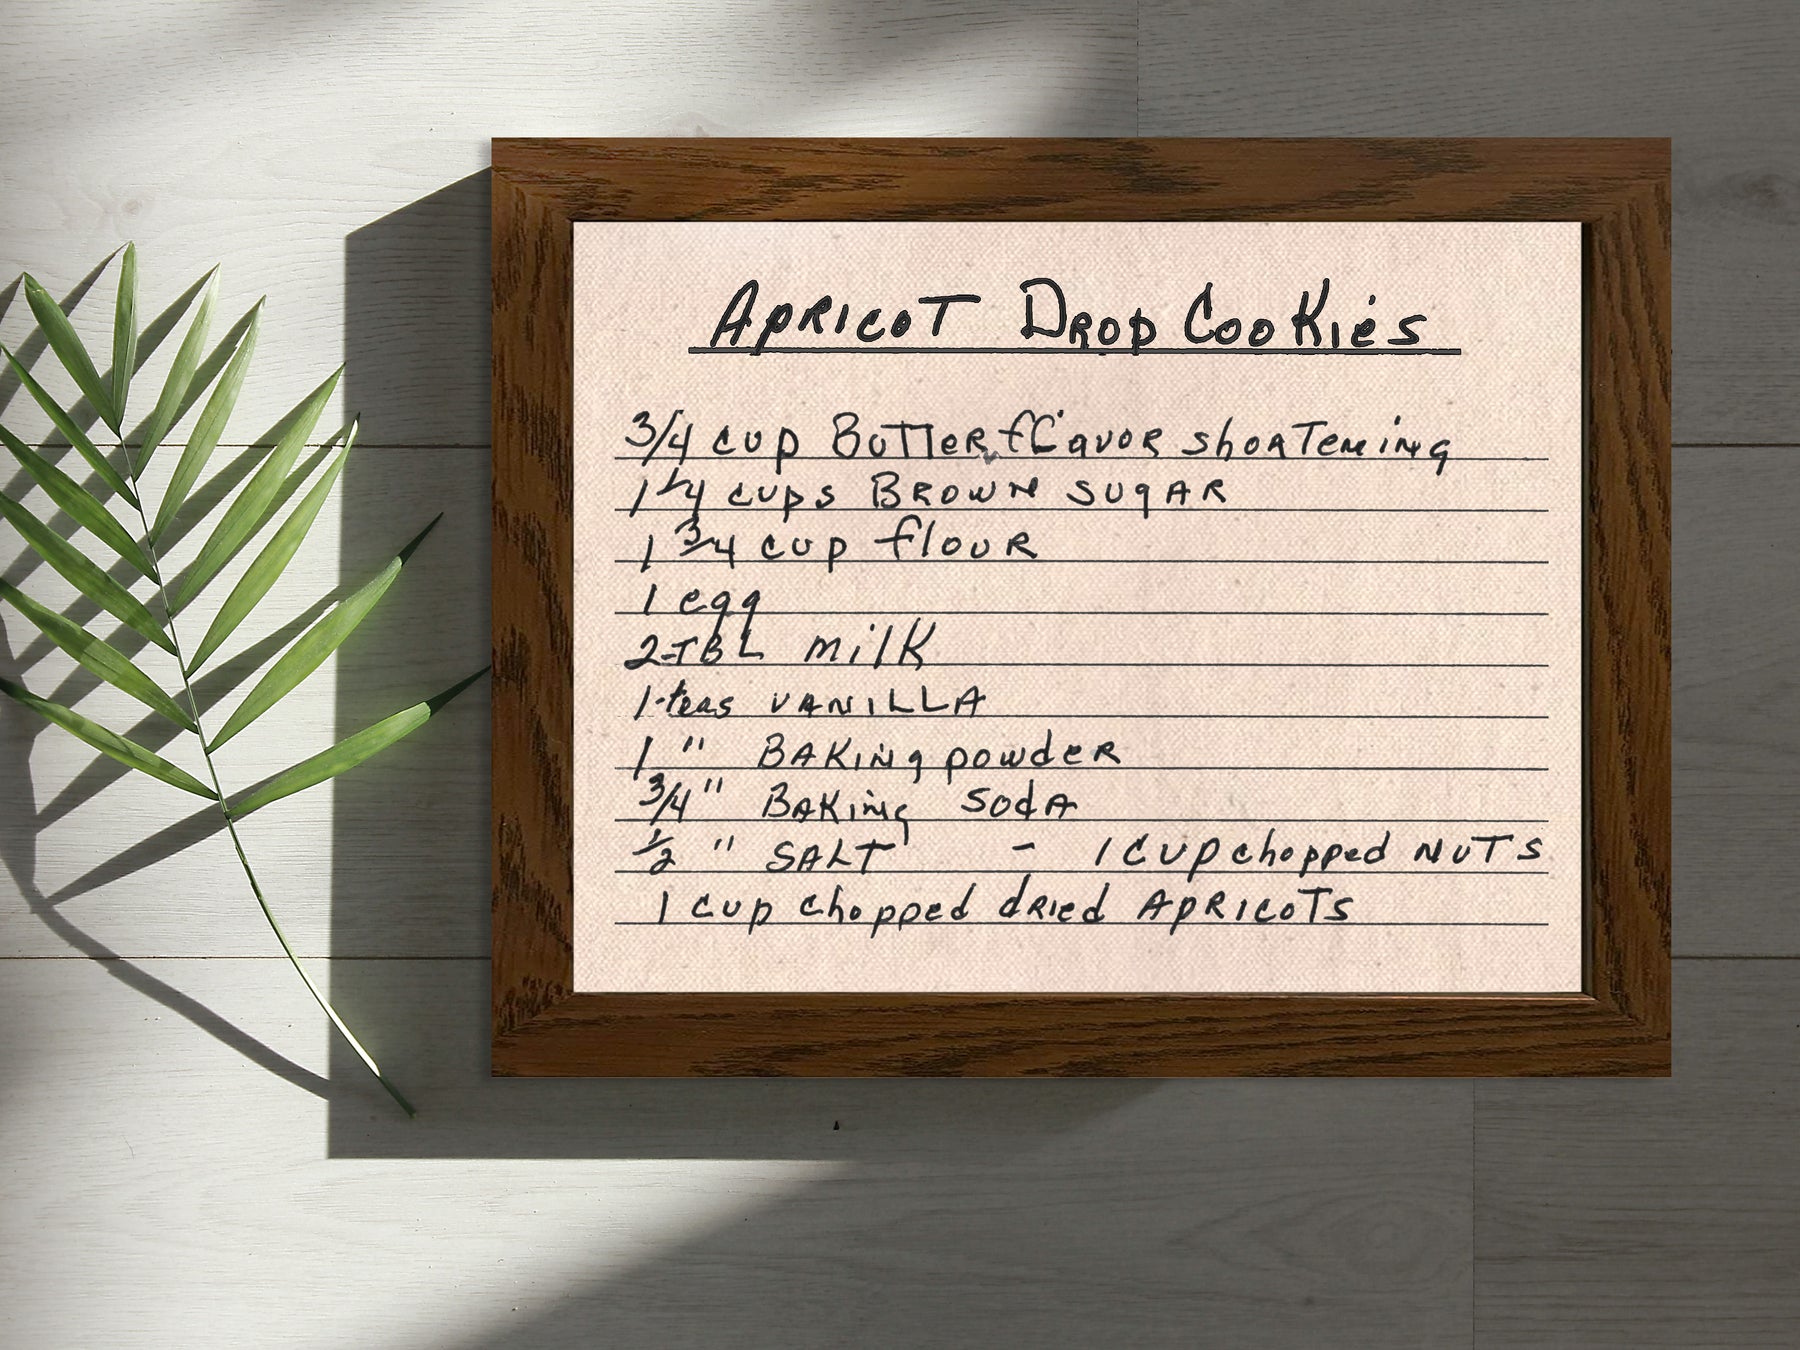 Apricot Drop Cookies
3/4 cup Butter flavor shortening
1 1/4 cups Brown sugar
1 3/4 cup flour
1 egg
2 TBL milk
1 teas vanilla
1 " Baking powder
3/4 " Baking soda
1/2 " Salt - 1 cup chopped nuts
1 cup chopped dried Apricots